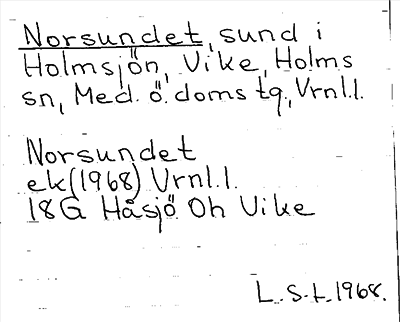 Norsundet, sund i
Holmsjön, Vike, Holms
sn, Med. ö. doms tg., Vrnl.l.
Norsundet
ek(1968) Vrnl.l.
18G Håsjö Oh Vike
L.S-t.1968.